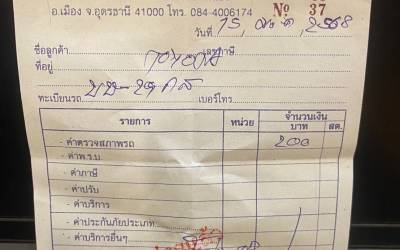 อ.เมือง จ.อุดรธานี 41000 โทร. 084-4006174
Nº 37
วันที่ 15, 2568
ชื่อลูกค้า เลขภาษี
ที่อยู่
ทะเบียนรถ เบอร์โทร
รายการ หน่วย จำนวนเงิน
บาท สต.
- ค่าตรวจสภาพรถ 200
- ค่าพ.ร.บ.
- ค่าภาษี
- ค่าปรับ
- ค่าบริการ
- ค่าประกันภัยประเภท
- ค่าบริการอื่นๆ